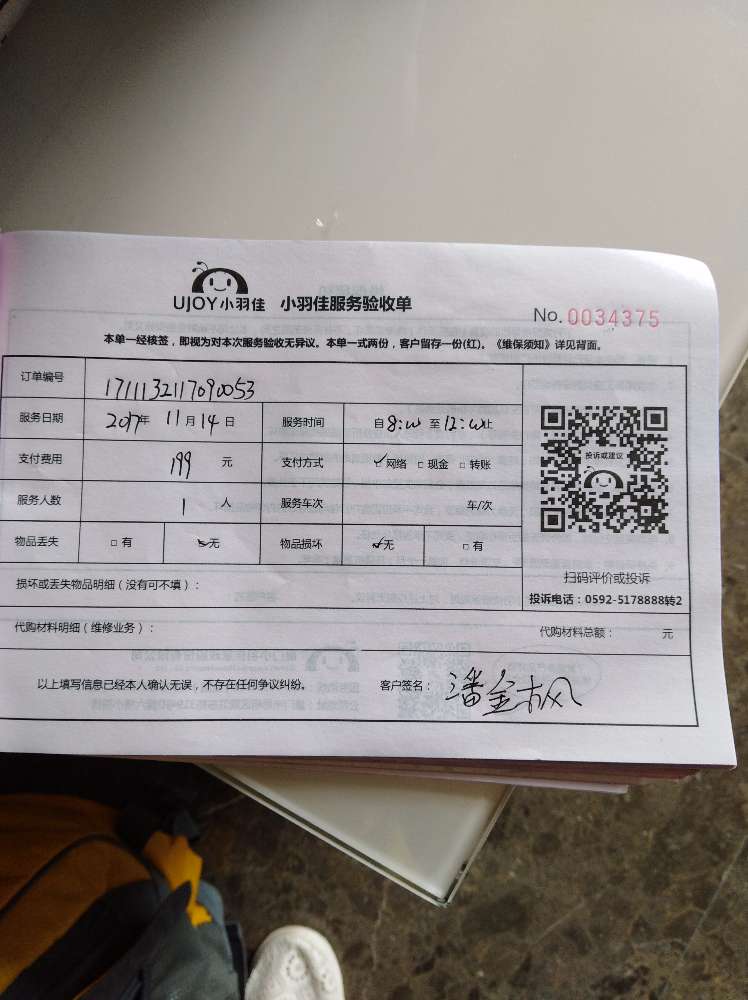 UJOY小羽佳 小羽佳服务验收单
No. 0034375
本单一经核签，即视为对本次服务验收无异议。本单一式两份，客户留存一份(红)。《维保须知》详见背面。
订单编号 1711132117090053
服务日期 2017年 11月 14日 服务时间 自 8:00 至 12:00止
支付费用 199 元 支付方式 ✓网络 □现金 □转账
服务人数 1 人 服务车次 车/次
物品丢失 □有 ✓无 物品损坏 ✓无 □有
投诉或建议
扫码评价或投诉
投诉电话：0592-5178888转2
损坏或丢失物品明细（没有可不填）：
代购材料明细（维修业务）： 代购材料总额： 元
以上填写信息已经本人确认无误，不存在任何争议纠纷。 客户签名：潘金枫